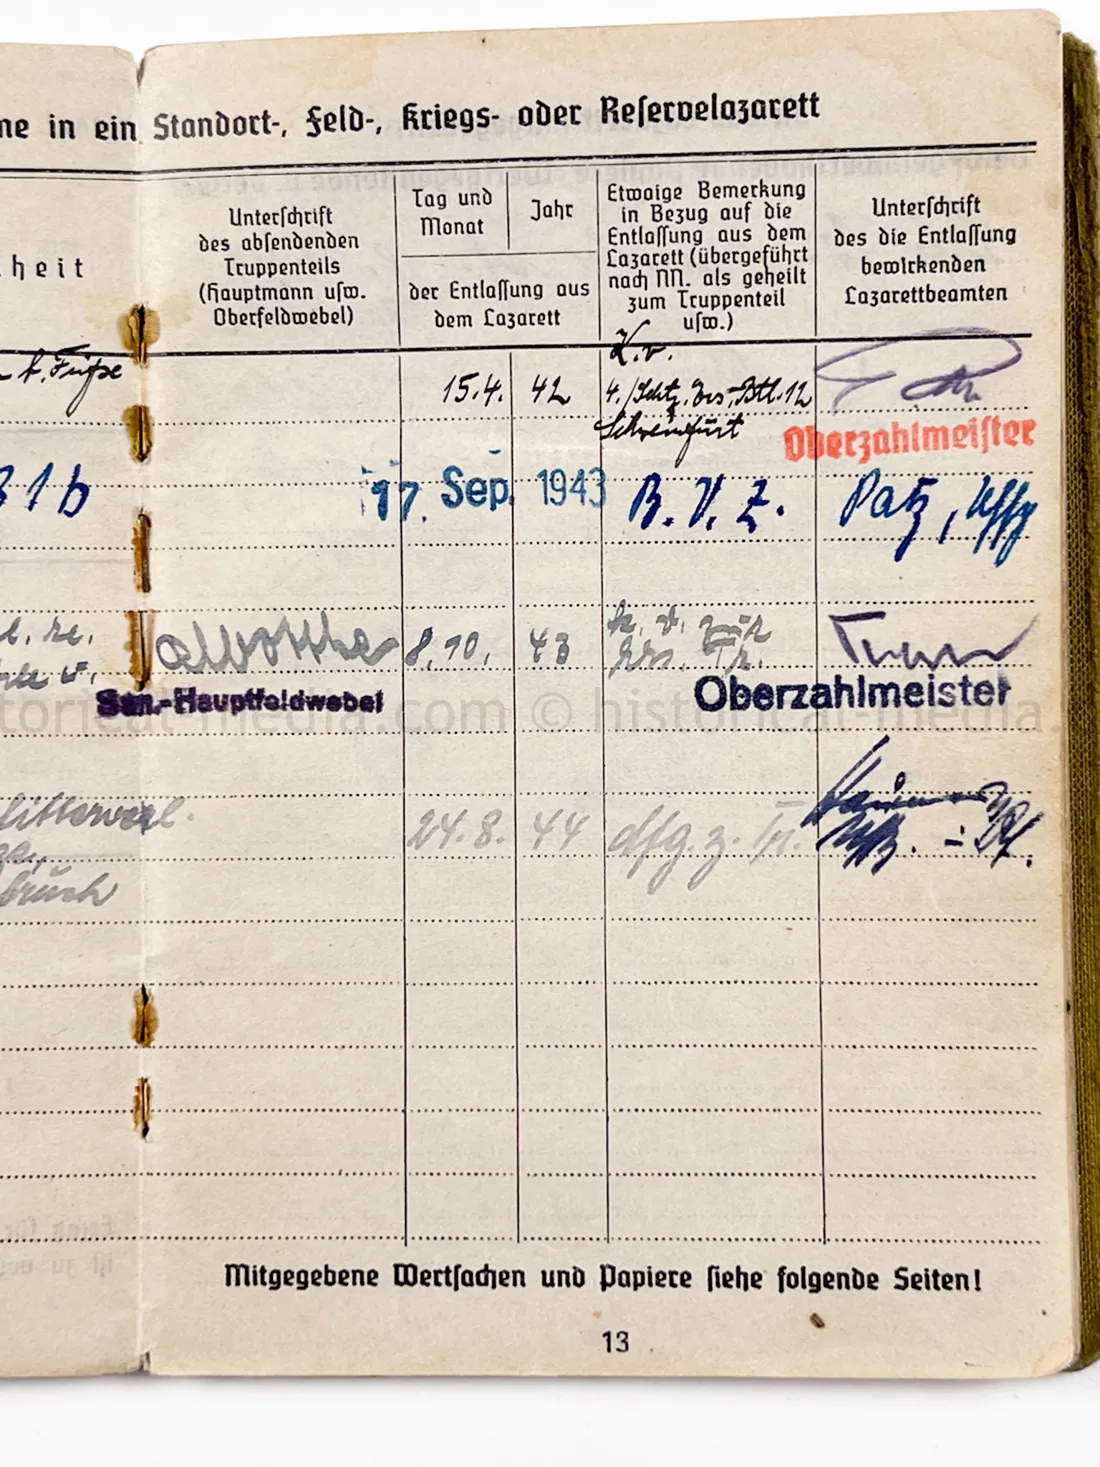 me in ein Standort-, Feld-, Kriegs- oder Reservelazarett
heit
Unterschrift
des absendenden
Truppenteils
(Hauptmann usw.
Oberfeldwebel)
Tag und
Monat
Jahr
der Entlassung aus
dem Lazarett
Etwaige Bemerkung
in Bezug auf die
Entlassung aus dem
Lazarett (übergeführt
nach NN. als geheilt
zum Truppenteil
usw.)
Unterschrift
des die Entlassung
bewirkenden
Lazarettbeamten
Füße
15.4. 42
K.v.
4./Schtz. Ers. Btl. 12
Schweinfurt
Oberzahlmeister
31b
17. Sep. 1943
B.V.Z.
Patz, Uffz
8.10. 43
k.v. zur
Ers. Tr.
San.-Hauptfeldwebel
Oberzahlmeister
historical-media.com © historical-media.
24.8. 44
dfg. z. Tr.
bruch
Mitgegebene Wertsachen und Papiere siehe folgende Seiten!
13